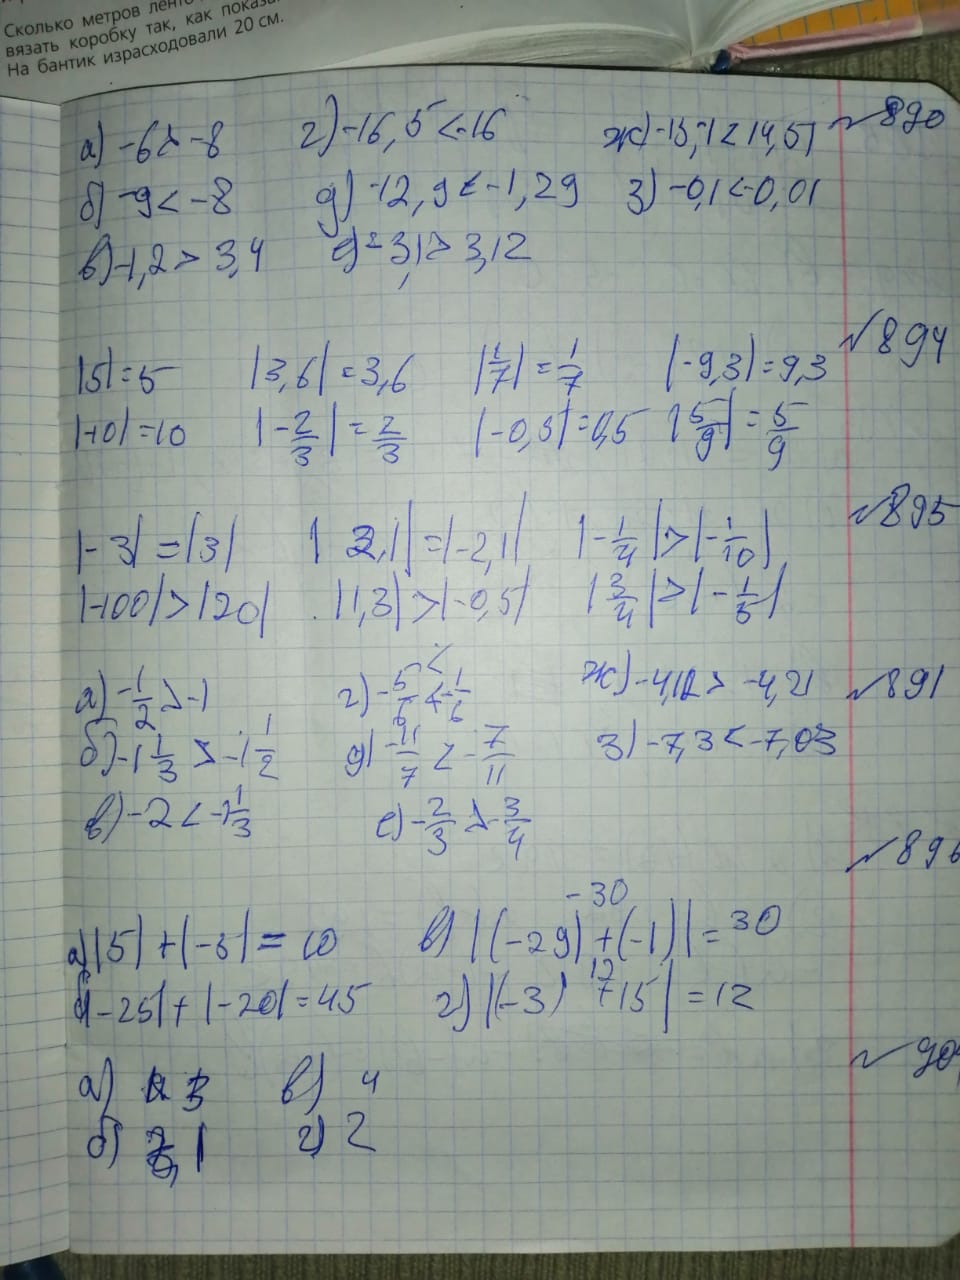 Сколько метров
вязать коробку так, как
На бантик израсходовали 20 см.
№890
а) -6 > -8 г) -16,5 < -16 ж) -15,1 < 14,51
б) -9 < -8 д) -12,9 < -1,29 з) -0,1 < -0,01
в) -1,2 > 3,4 е) -3,1 > 3,12
№894
|5| = 5 |3,6| = 3,6 |1/7| = 1/7 |-9,3| = 9,3
|-10| = 10 |-2/3| = 2/3 |-0,5| = 0,5 |5/9| = 5/9
№895
|-3| = |3| |2,1| = |-2,1| |-1/4| > |-1/10|
|-100| > |20| |1,3| > |-0,5| |3/4| > |-1/5|
№891
а) -1/2 > -1 г) -5/6 < -1/6 ж) -4,12 > -4,21
б) -1 1/3 > -1 1/2 д) -11/7 < -7/11 з) -7,3 < -7,03
в) -2 < -1 1/3 е) -2/3 > -3/4
№896
-30
а) |5| + |-5| = 10 в) |(-29) + (-1)| = 30
12
б) |-25| + |-20| = 45 г) |(-3) + 15| = 12
а) 3 в) 4
б) 1 г) 2